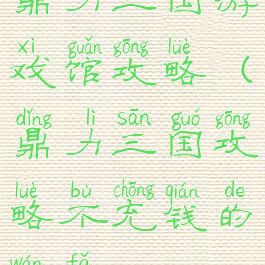 鼎力三国游
xì guǎn gōng lüè
戏馆攻略（
dǐng lì sān guó gōng
鼎力三国攻
lüè bù chōng qián de
略不充钱的
wán fǎ